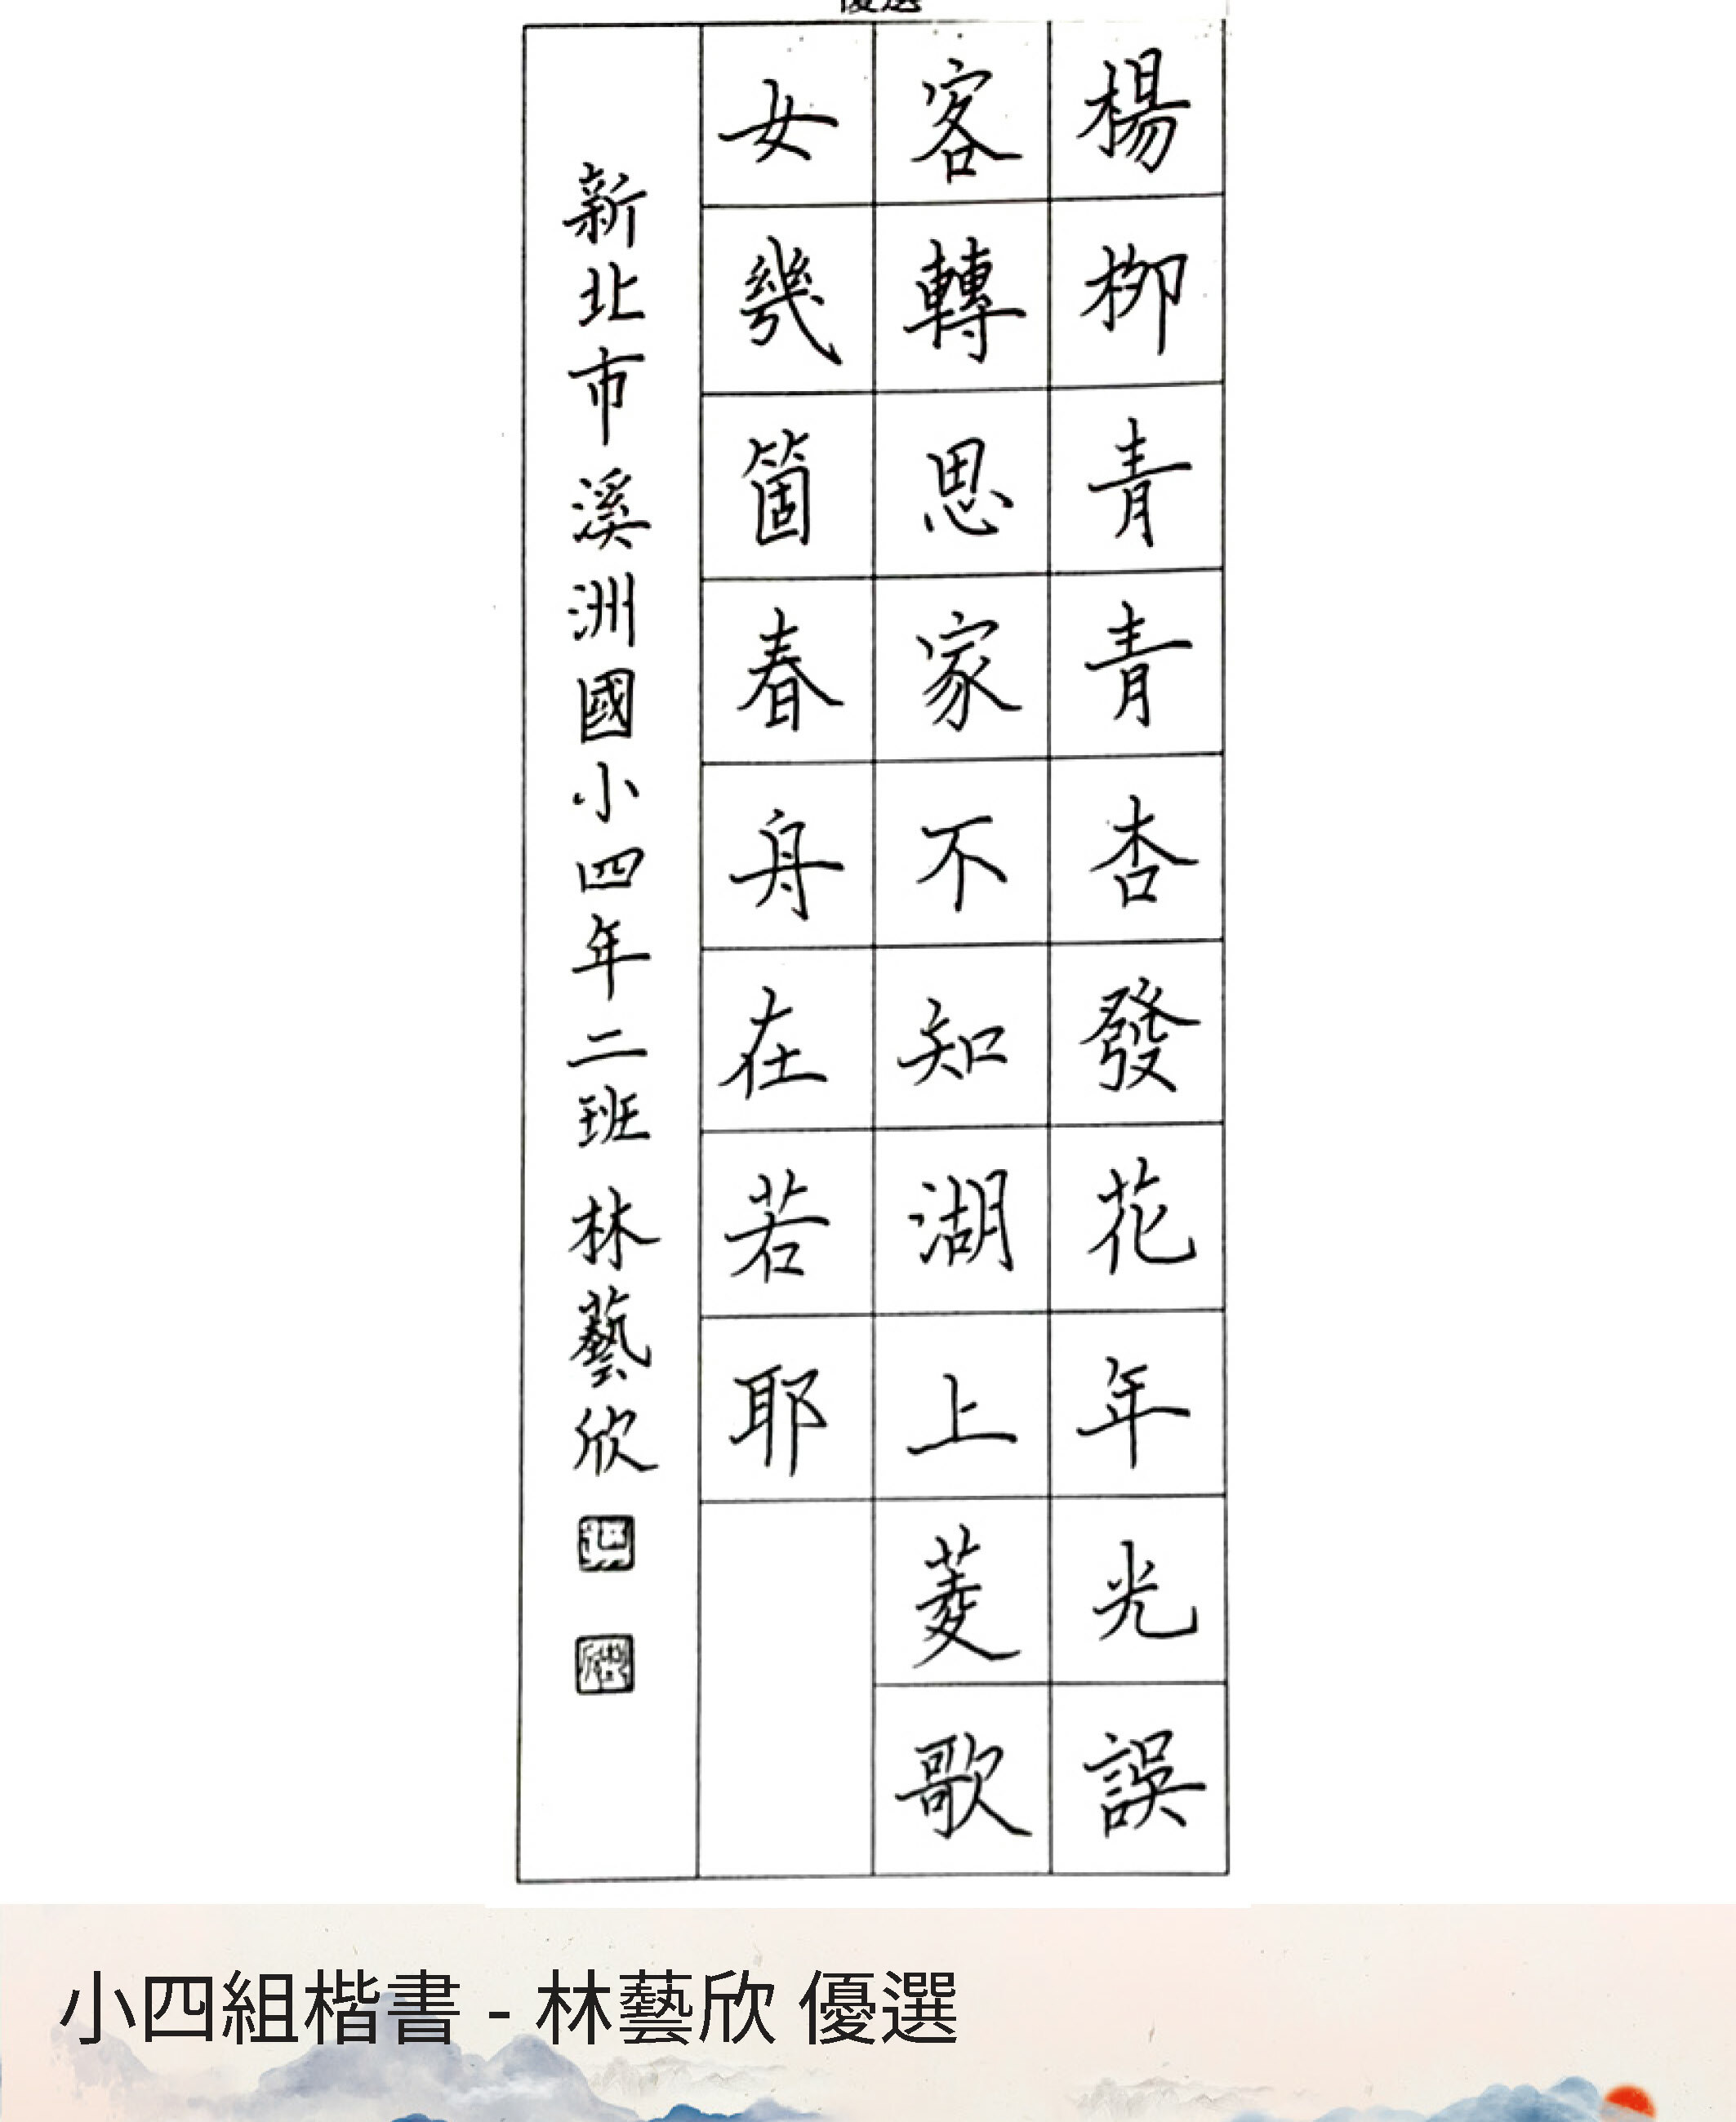 優選
楊柳青青杏發花年光誤
客轉思家不知湖上菱歌
女幾箇春舟在若耶
新北市溪洲國小四年二班 林藝欣
小四組楷書 - 林藝欣 優選